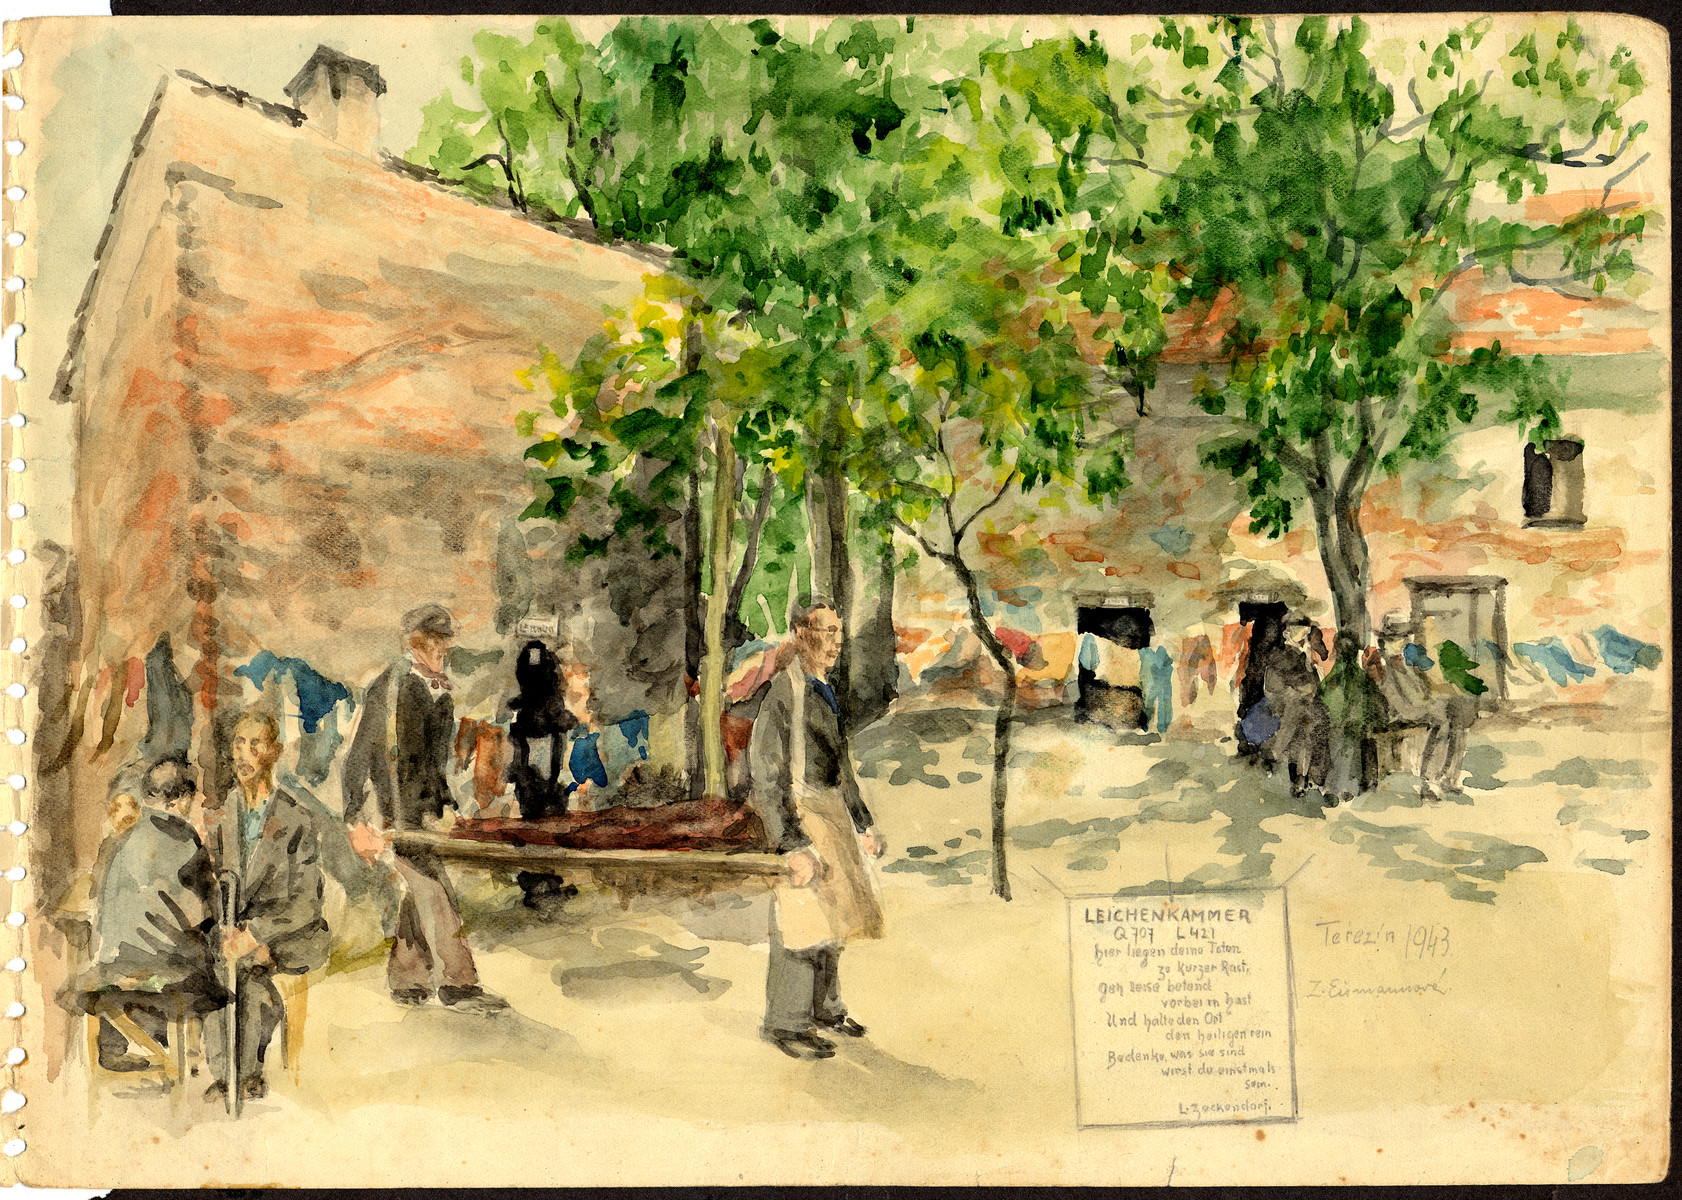 LEICHENKAMMER
Q 707 L 421
hier liegen deine Toten
zu kurzer Rast,
geh leise betend
vorbei in hast
Und halte den Ort
den heiligen rein
Bedenke, was sie sind
wirst du einstmals
sein.
L. Zeckendorf.
Terezín 1943
Z. Eismannová.